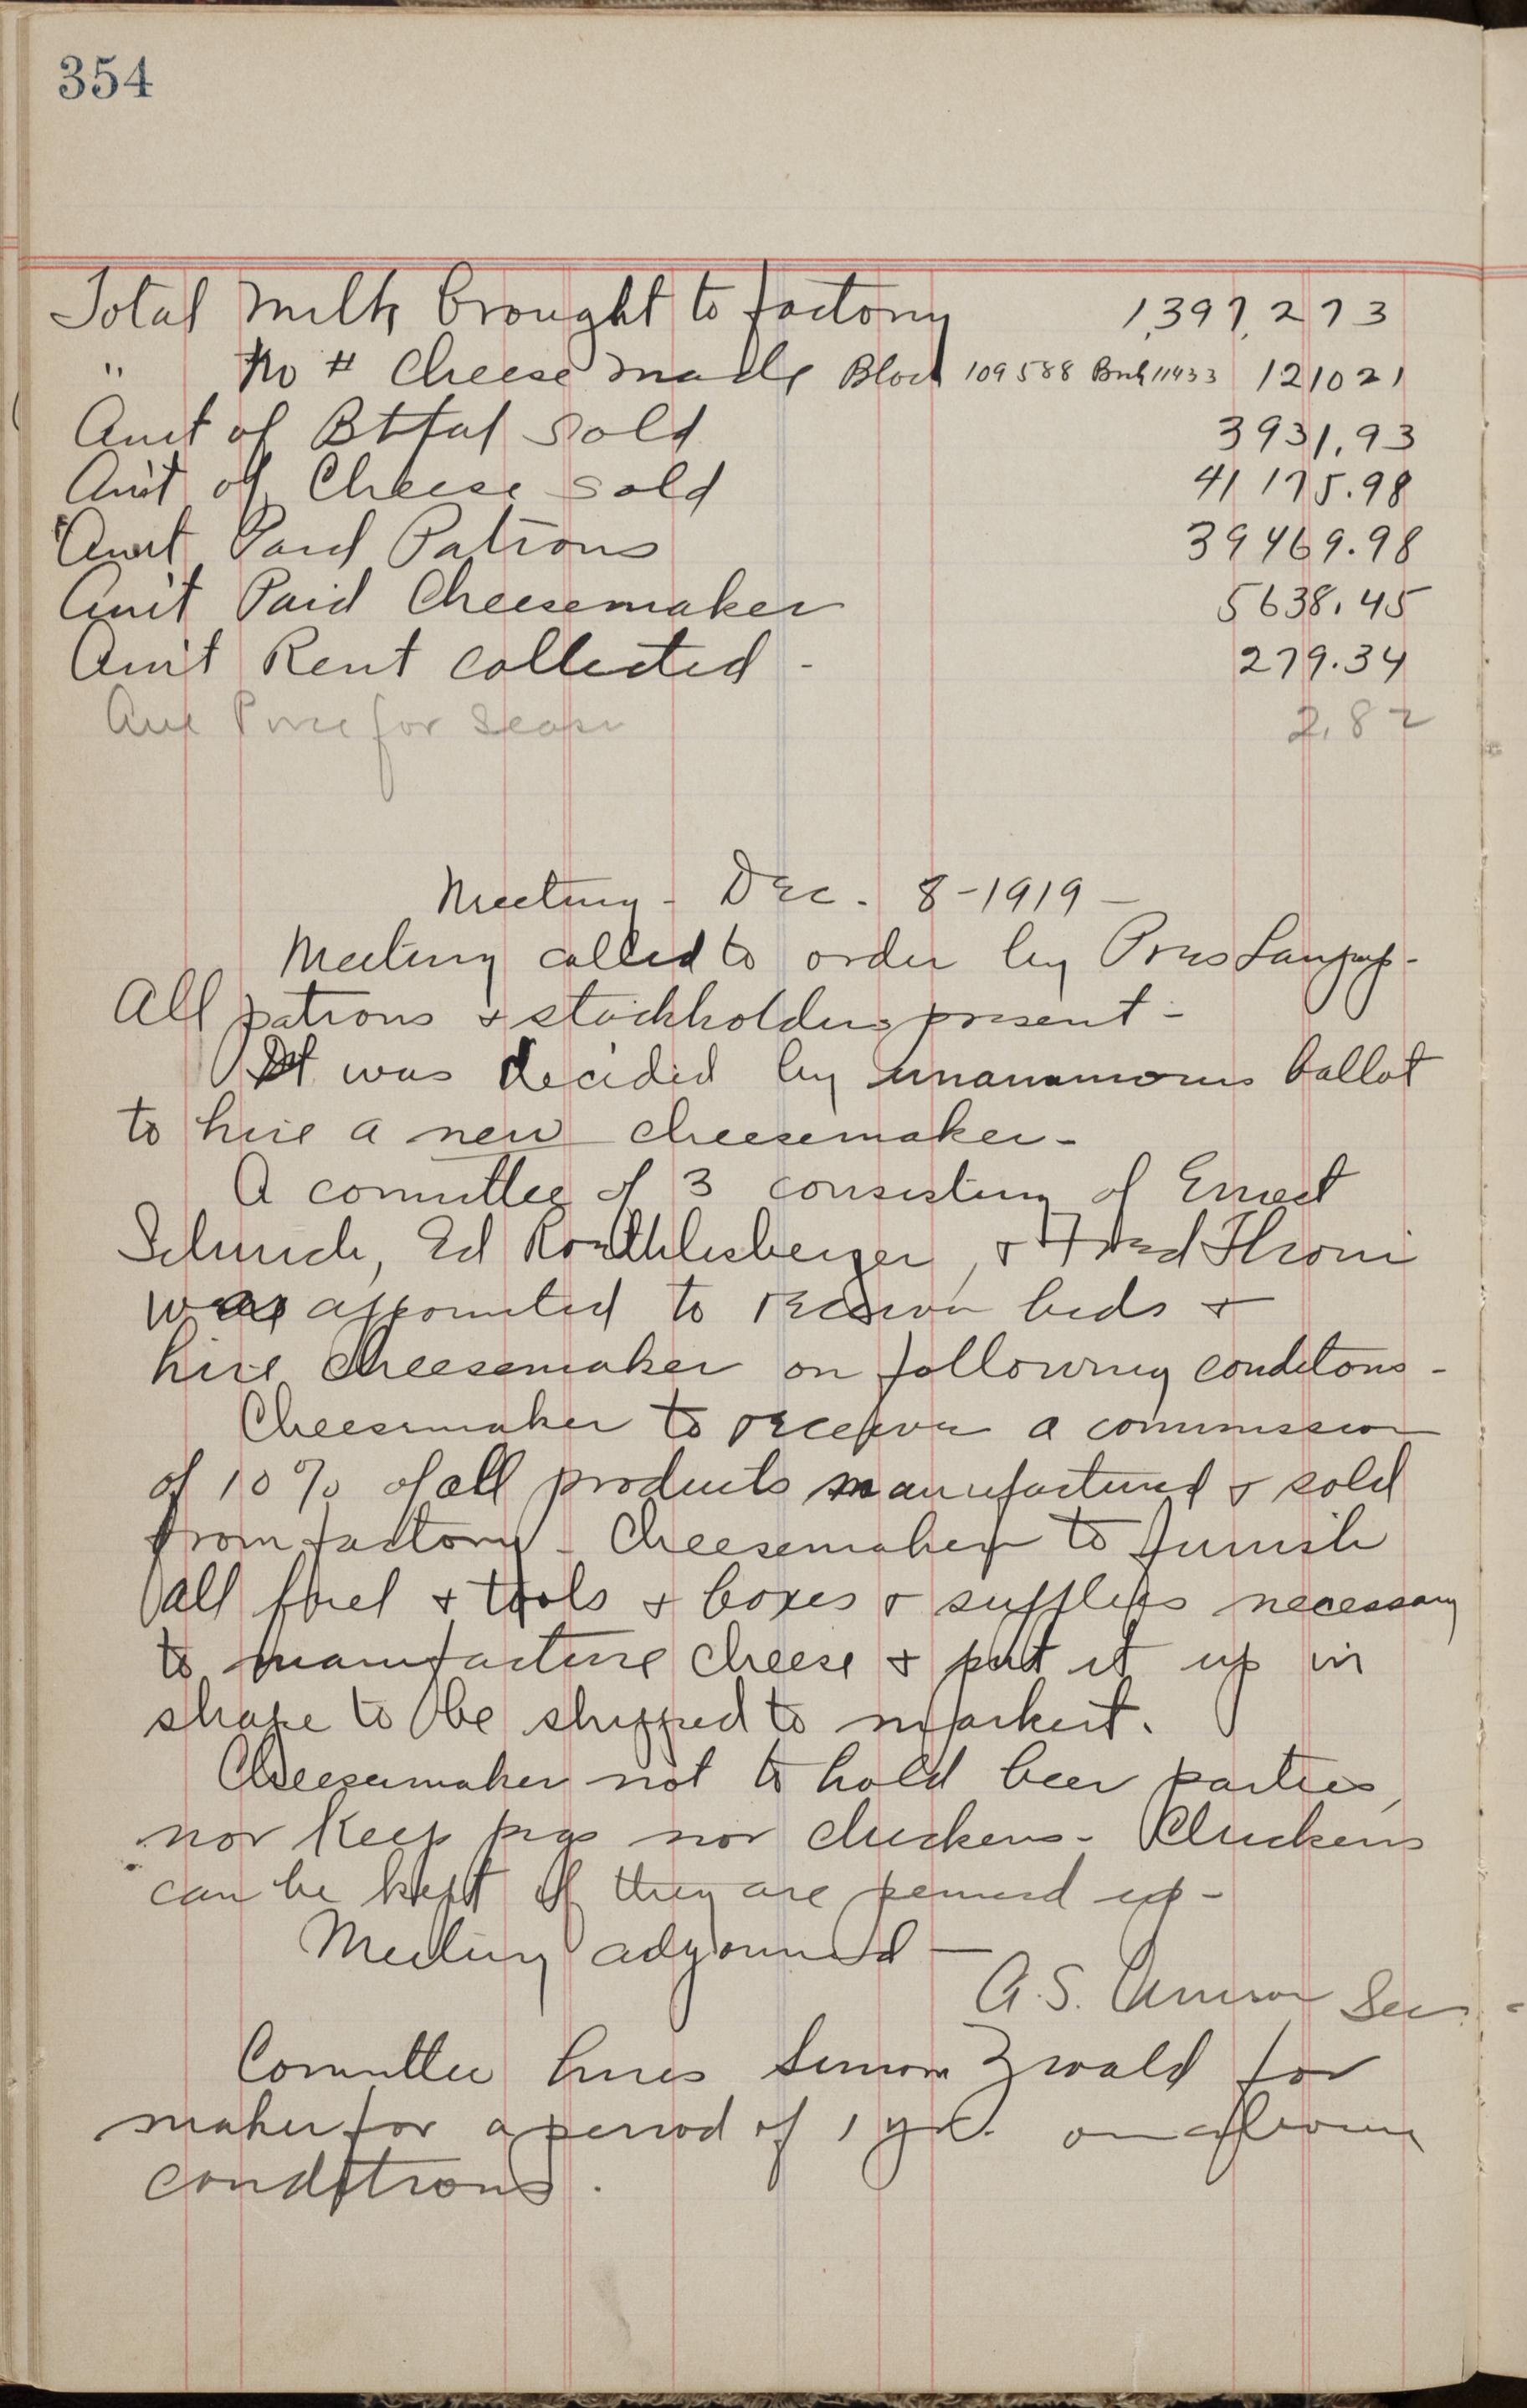 354
Total Milk brought to factory 1,397,273
" No # Cheese made Block 109588 Brick 11433 121021
Amt of Btfat Sold 3931.93
Am't of Cheese Sold 41175.98
Amt Paid Patrons 39469.98
Am't Paid Cheesemaker 5638.45
Am't Rent collected - 279.34
Ave Price for Season 2.82
Meeting - Dec. 8-1919 -
Meeting called to order by Pres
All patrons & stockholders present -
It was decided by unanimous ballot
to hire a new cheesemaker -
A committee of 3 consisting of Ernest
Ed Roethlisberger, & Fred Thoni
was appointed to receive bids &
hire cheesemaker on following conditons -
Cheesemaker to receive a commission
of 10% of all products manufactured & sold
from factory - Cheesemaker to furnish
all fuel & tools & boxes & supplies necessary
to manufacture cheese & put it up in
shape to be shipped to market.
Cheesemaker not to hold beer parties,
nor keep pigs nor chickens - Chickens
can be kept if they are penned up -
Meeting adjourned -
A.S. Sec.
Committee hires Simon Zwald for
maker for a period of 1 yr. on above
conditions.